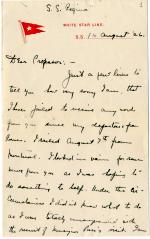 S.S. Regina
WHITE STAR LINE.
S.S. 14 August 26.
Dear Professor: -
Just a few lines to
tell you how very sorry I am, that
I have failed to receive any word
from you since my departure from
Rome. I sailed August 7th from
Montreal. I looked in vain for some
news from you as I was hoping to
do something to help. Under the cir-
cumstances I did not know what to do
as I was totally unacquainted with
the result of visit. I am